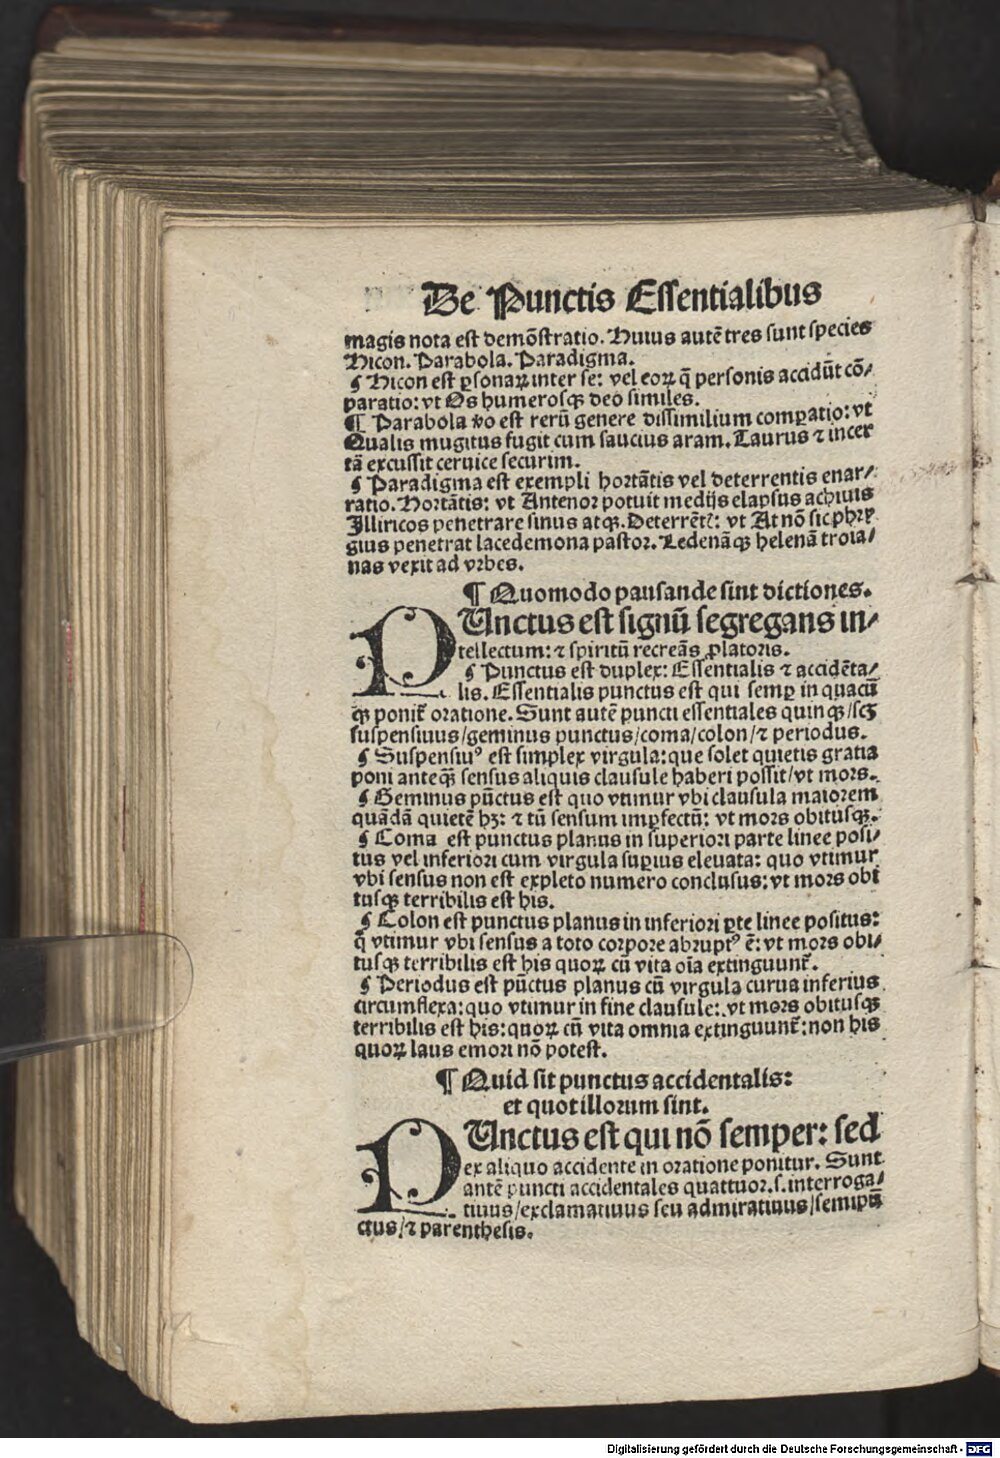 De Punctis Essentialibus
magis nota est demõstratio. Huius autẽ tres sunt species
Hicon. Parabola. Paradigma.
¶ Hicon est ꝑsonaꝝ inter se: vel eoꝝ q̃ personis accidũt cõ/
paratio: vt Os humerosqꝫ deo similes.
¶ Parabola ṽo est rerũ genere dissimilium comꝑatio: vt
Qualis mugitus fugit cum saucius aram. Taurus ⁊ incer
tã excussit ceruice securim.
¶ Paradigma est exempli hortãtis vel deterrentis enar/
ratio. Hortãtis: vt Antenor potuit medijs elapsus achiuis
Illiricos penetrare sinus atqꝫ. Deterrẽt?: vt At nõ sic phry
gius penetrat lacedemona pastor. Ledenãqꝫ helenã troia/
nas vexit ad vrbes.
¶ Quomodo pausande sint dictiones.
PUnctus est signũ segregans in/
tellectum: ⁊ spiritũ recreãs ꝓlatoris.
¶ Punctus est duplex: Essentialis ⁊ accidẽta/
lis. Essentialis punctus est qui semꝑ in quacũ
qꝫ ponit̃ oratione. Sunt autẽ puncti essentiales quinqꝫ/scꝫ
suspensiuus/geminus punctus/coma/colon/⁊ periodus.
¶ Suspensiuꝰ est simplex virgula: que solet quietis gratia
poni anteq̃ꝫ sensus aliquis clausule haberi possit/vt mors.
¶ Geminus pũctus est quo vtimur vbi clausula maiorem
quãdã quietẽ hꝫ: ⁊ tñ sensum imꝑfectũ: vt mors obitusqꝫ.
¶ Coma est punctus planus in superiori parte linee posi/
tus vel inferiori cum virgula suꝑius eleuata: quo vtimur
vbi sensus non est expleto numero conclusus: vt mors obi
tusqꝫ terribilis est his.
¶ Colon est punctus planus in inferiori ꝑte linee positus:
q̃ vtimur vbi sensus a toto corpore abruptꝰ ẽ: vt mors obi/
tusqꝫ terribilis est his quoꝝ cũ vita oĩa extinguunt̃.
¶ Periodus est pũctus planus cũ virgula curua inferius
circumflexa: quo vtimur in fine clausule: vt mors obitusqꝫ
terribilis est his: quoꝝ cũ vita omnia extinguunt̃: non his
quoꝝ laus emori nõ potest.
¶ Quid sit punctus accidentalis:
et quot illorum sint.
PUnctus est qui nõ semper: sed
ex aliquo accidente in oratione ponitur. Sunt
autẽ puncti accidentales quattuor.s. interroga/
tiuus/exclamatiuus seu admiratiuus/semipũ
ctus/⁊ parenthesis.
Digitalisierung gefördert durch die Deutsche Forschungsgemeinschaft - DFG